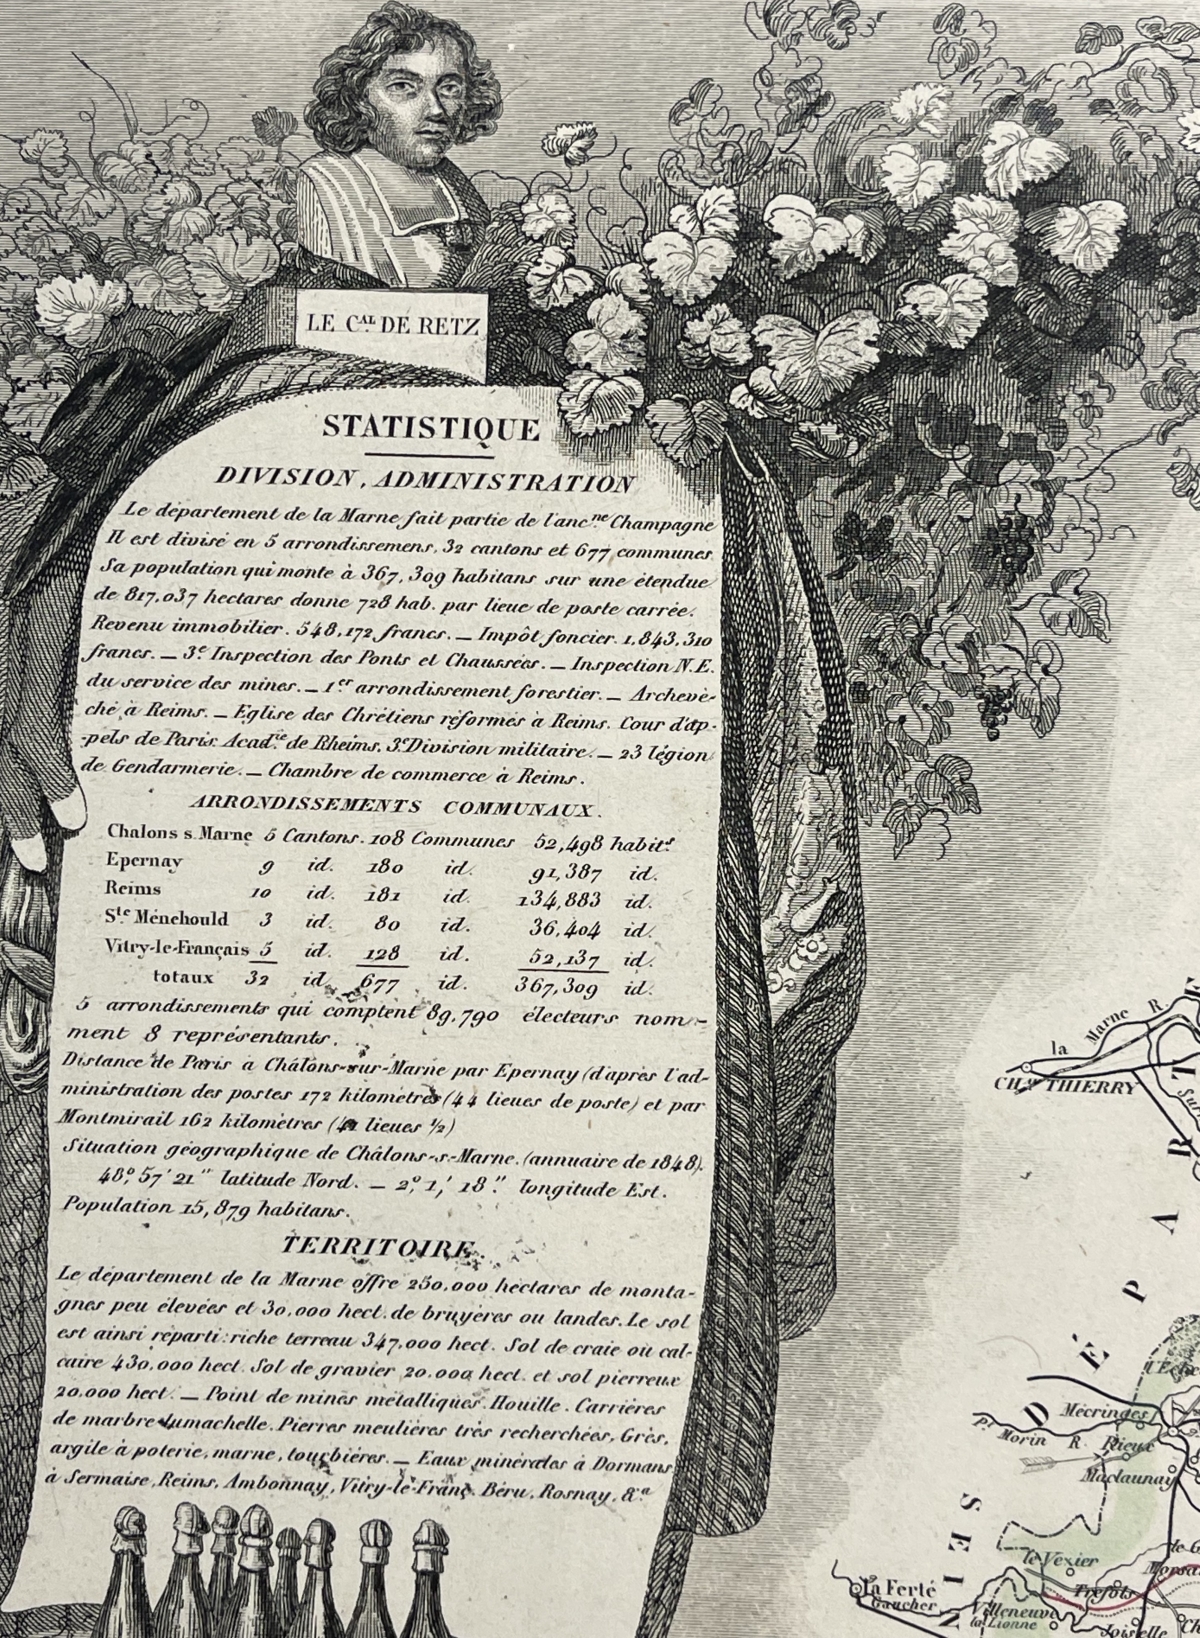 LE C.AL DE RETZ
STATISTIQUE
DIVISION, ADMINISTRATION
Le département de la Marne fait partie de l'anc.ne Champagne
Il est divisé en 5 arrondissemens, 32 cantons et 677 communes
Sa population qui monte à 367,309 habitans sur une étendue
de 817,037 hectares donne 728 hab. par lieue de poste carrée.
Revenu immobilier. 548,172 francs. — Impôt foncier. 1,843,310
francs. — 3.e Inspection des Ponts et Chaussées. — Inspection N.E.
du service des mines. — 1.er arrondissement forestier. — Archevê-
ché à Reims. — Eglise des Chrétiens réformés à Reims. Cour d'ap-
-pels de Paris. Acad.ie de Rheims. 3.e Division militaire. — 23 légion
de Gendarmerie. — Chambre de commerce à Reims.
ARRONDISSEMENTS COMMUNAUX.
Chalons s. Marne 5 Cantons. 108 Communes 52,498 habit.s
Epernay 9 id. 180 id. 91,387 id.
Reims 10 id. 181 id. 134,883 id.
S.te Ménehould 3 id. 80 id. 36,404 id.
Vitry-le-Français 5 id. 128 id. 52,137 id.
totaux 32 id. 677 id. 367,309 id.
5 arrondissements qui comptent 89,790 électeurs nom-
ment 8 représentants.
Distance de Paris à Châlons-sur-Marne par Epernay (d'après l'ad-
ministration des postes 172 kilomètres (44 lieues de poste) et par
Montmirail 162 kilomètres (41 lieues ½)
Situation géographique de Châlons-s.-Marne. (annuaire de 1848).
48.° 57' 21" latitude Nord. — 2.° 1,' 18." longitude Est.
Population 15,879 habitans.
TERRITOIRE.
Le département de la Marne offre 250,000 hectares de monta-
gnes peu élevées et 30,000 hect. de bruyères ou landes. Le sol
est ainsi réparti: riche terreau 347,000 hect. Sol de craie ou cal-
caire 430,000 hect. Sol de gravier 20,000 hect. et sol pierreux
20,000 hect. — Point de mines métalliques. Houille. Carrières
de marbre lumachelle. Pierres meulières très recherchées, Grès,
argile à poterie, marne, tourbières. — Eaux minérales à Dormans
à Sermaise, Reims, Ambonnay, Vitry-le-Franç. Béru, Rosnay, &.a
la Marne R.
CH.AU THIERRY
DÉPART
Mécringes
P.t Morin R.
Rieux
Maclaunay
le Vézier
Tréfols
la Ferté
Gaucher
Villeneuve
la Lionne
Joiselle